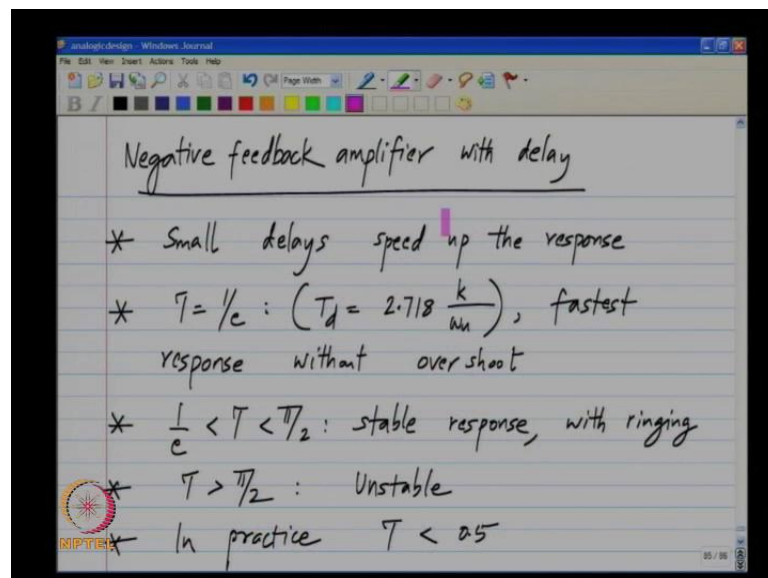 analogicdesign - Windows Journal
File Edit View Insert Actions Tools Help
Page Width
B I
Negative feedback amplifier with delay
* Small delays speed up the response
* T = 1/e : (T_d = 2.718 k/ωu), fastest
response without overshoot
* 1/e < T < π/2 : stable response, with ringing
* T > π/2 : Unstable
* In practice T < 0.5
NPTEL
85 / 86